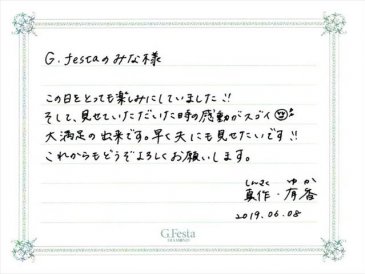 G.festaのみな様
この日をとっても楽しみにしていました!!
そして、見せていただいた時の感動がスゴイ
大満足の出来です。早く夫にも見せたいです!!
これからもどうぞよろしくお願いします。
しんさく ゆか
真作・有香
2019.06.08
G.Festa